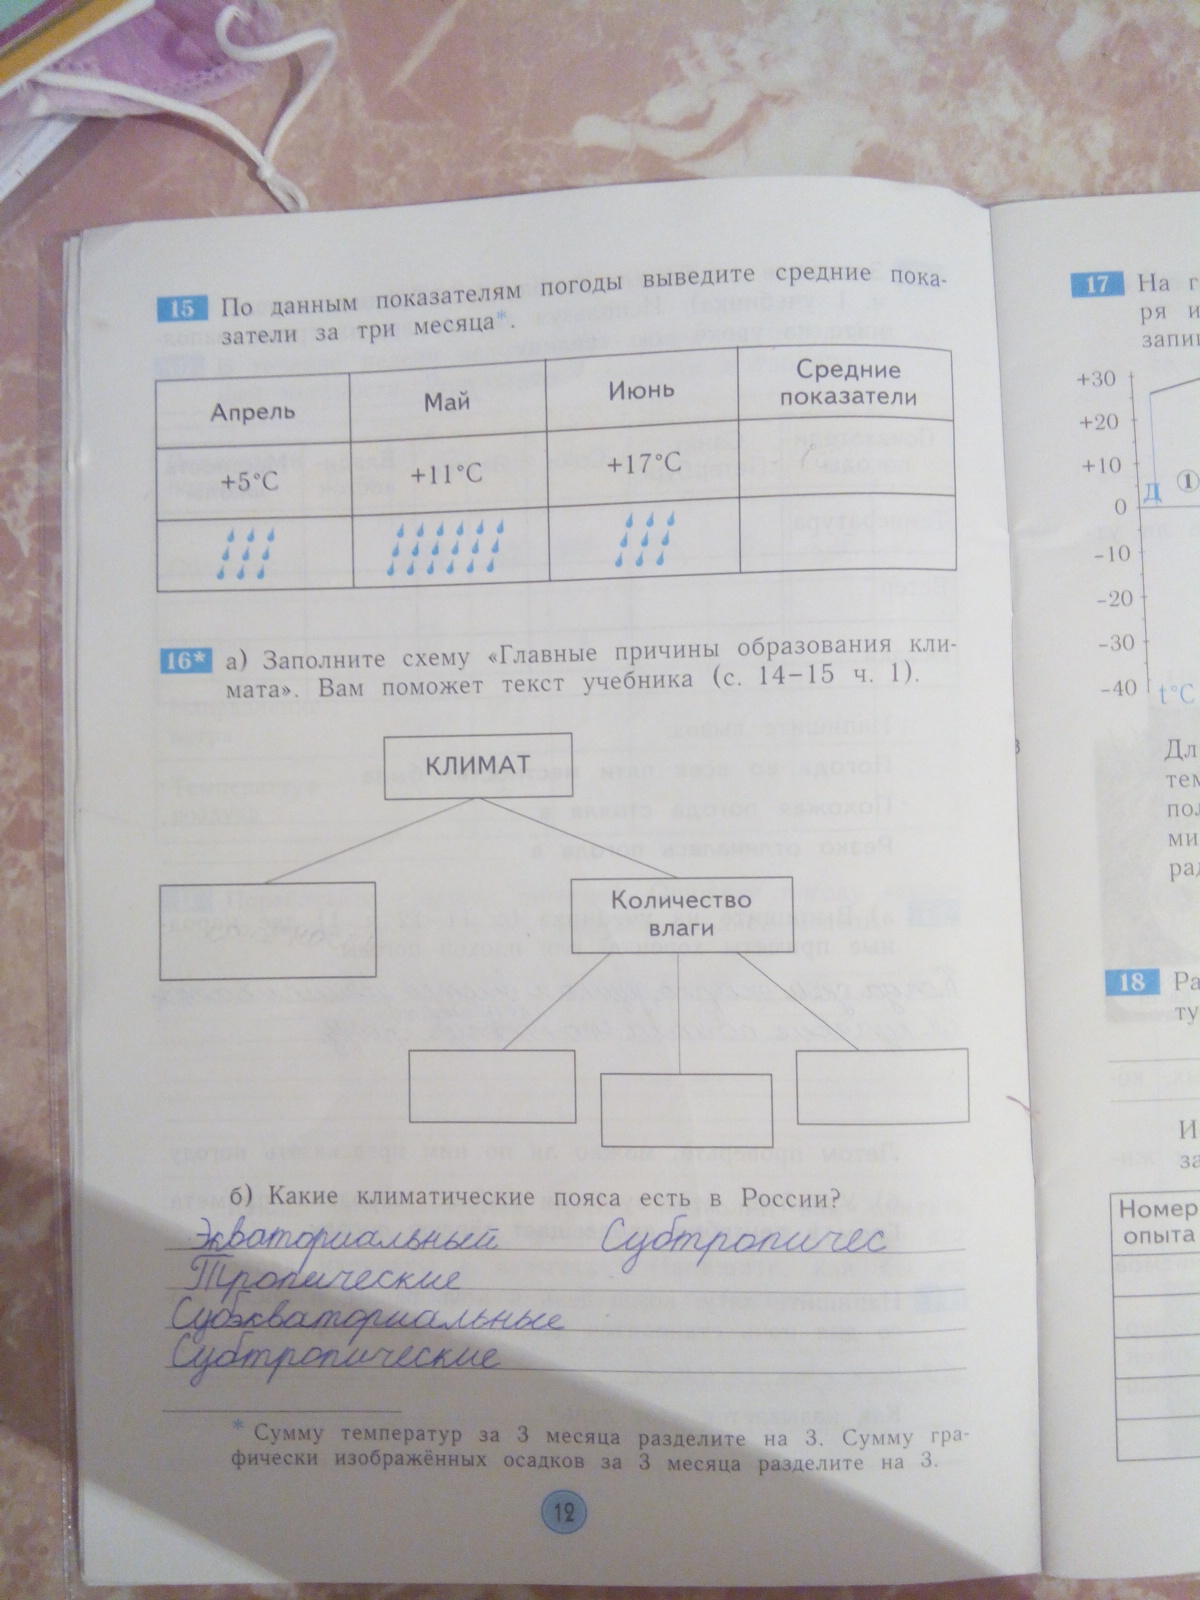 15 По данным показателям погоды выведите средние пока-
затели за три месяца*.
Апрель Май Июнь Средние показатели
+5°C +11°C +17°C
16* а) Заполните схему «Главные причины образования кли-
мата». Вам поможет текст учебника (с. 14–15 ч. 1).
КЛИМАТ
Количество
влаги
б) Какие климатические пояса есть в России?
Экваториальный Субтропичес
Тропические
Субэкваториальные
Субтропические
* Сумму температур за 3 месяца разделите на 3. Сумму гра-
фически изображённых осадков за 3 месяца разделите на 3.
12
17 На г
ря и
запи
+30
+20
+10
Д 1
0
-10
-20
-30
-40 t°C
Дл
тем
пол
ми
рад
18 Ра
ту
И
за
Номер
опыта